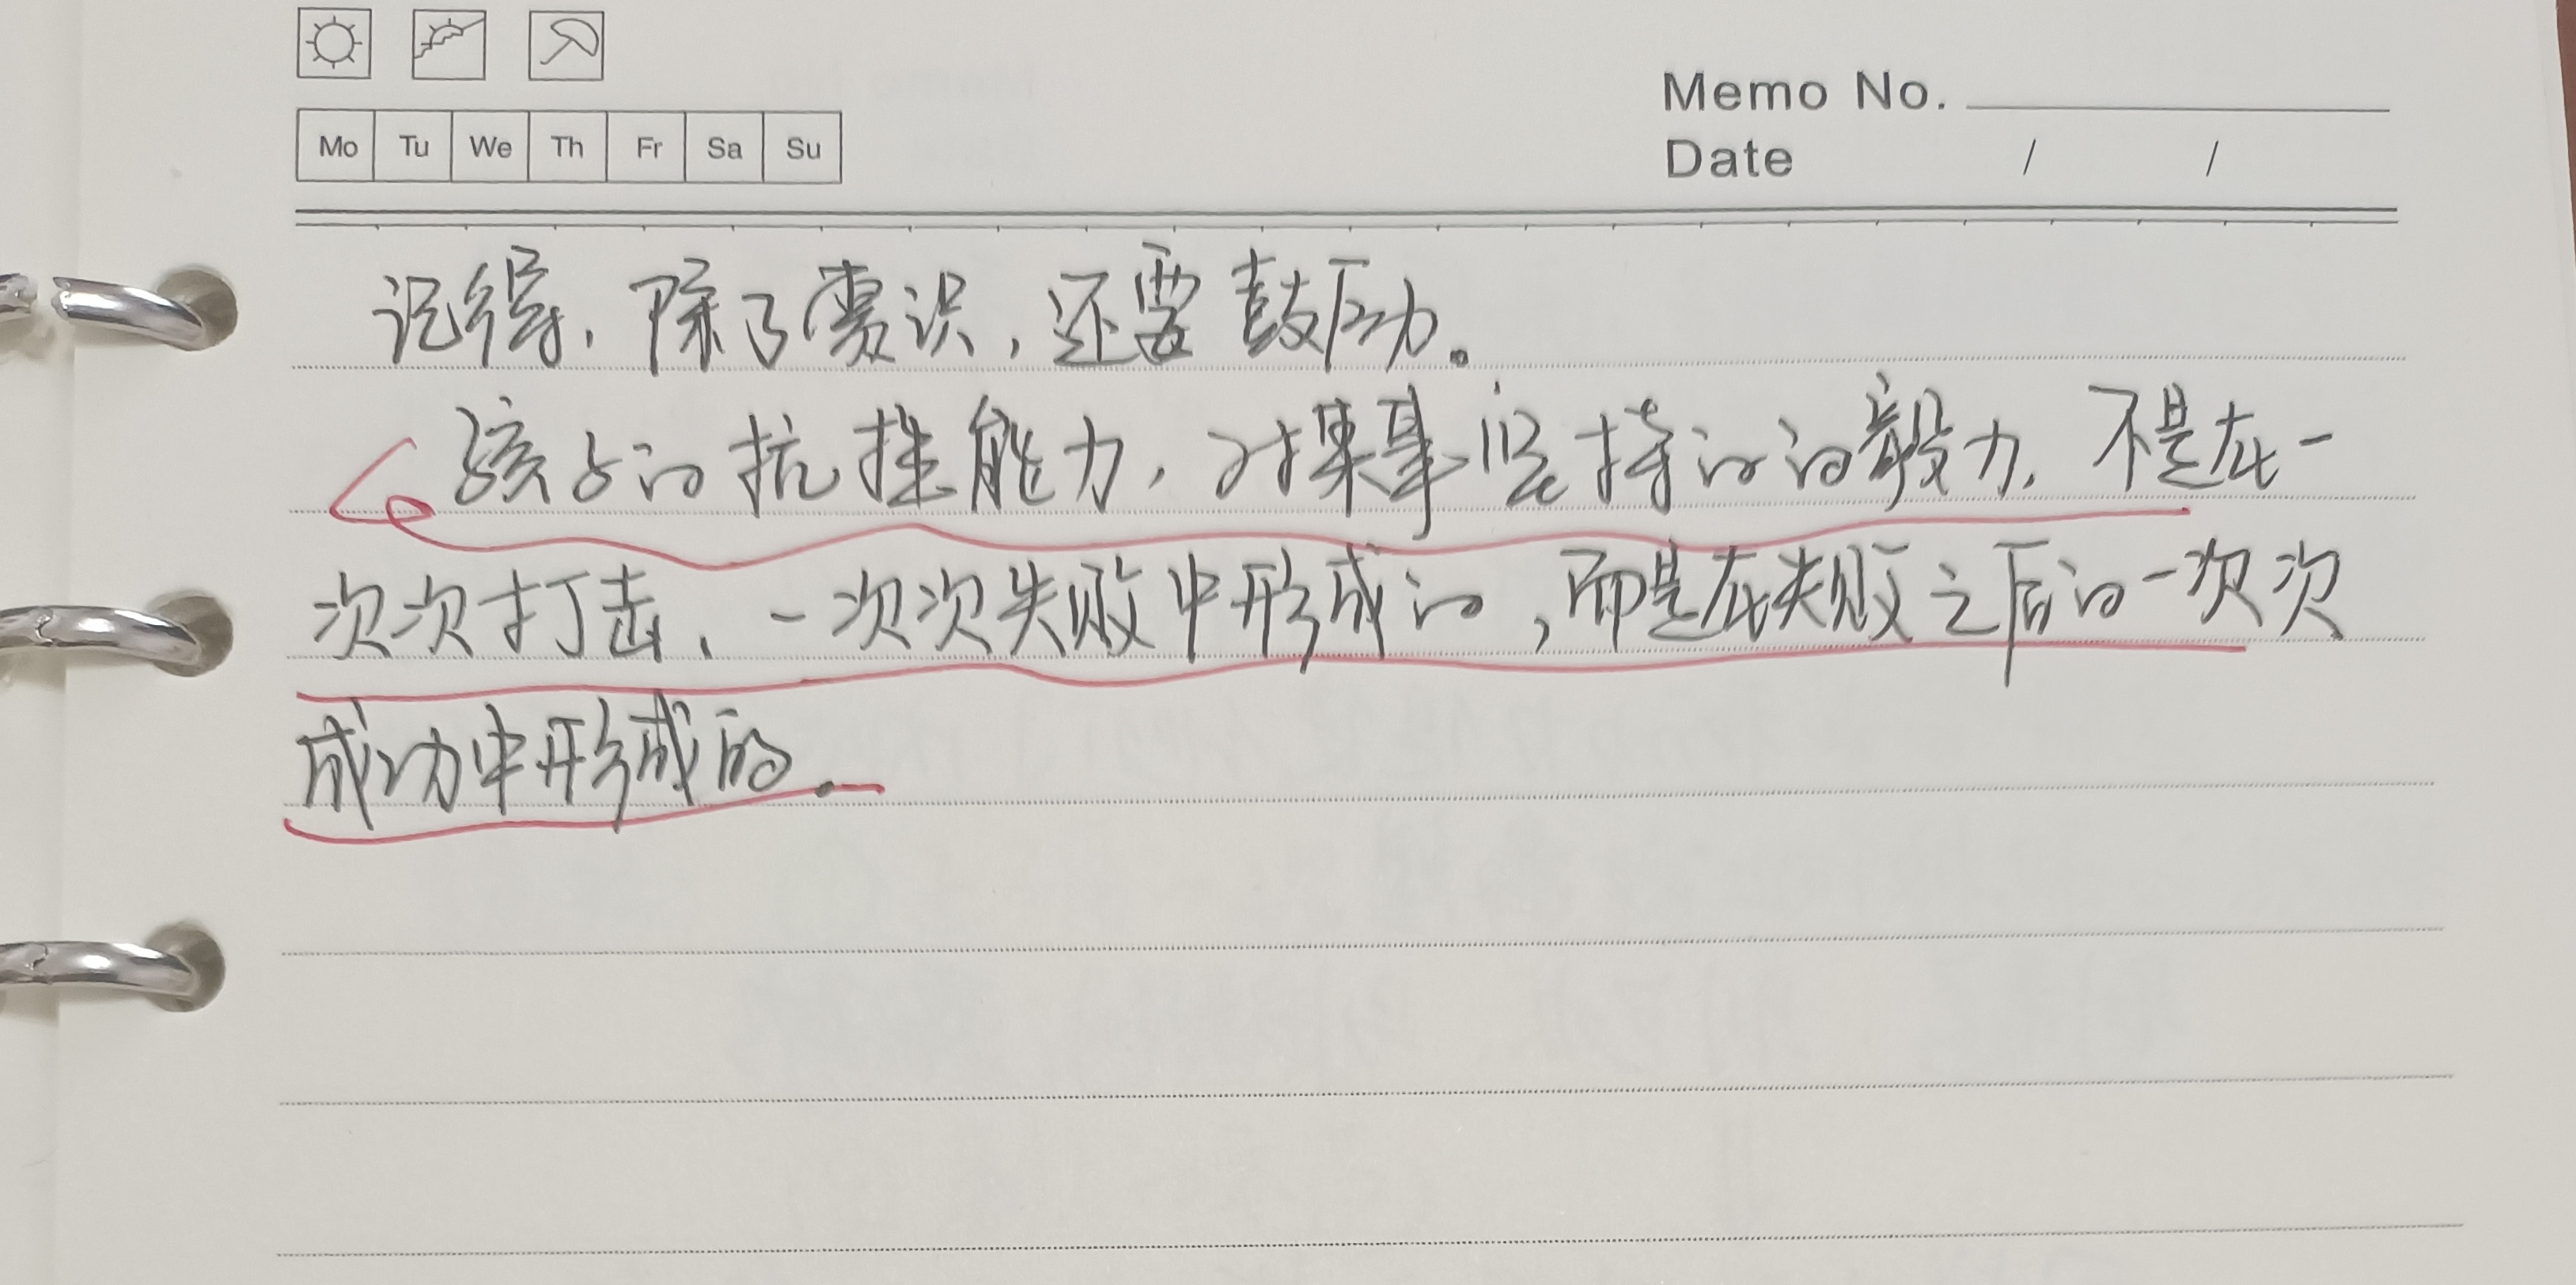 Memo No.
Mo Tu We Th Fr Sa Su
Date / /
记得，除了赏识，还要鼓励。
孩子的抗挫能力，对某事坚持的的毅力，不是在一
次次打击、一次次失败中形成的，而是在失败之后的一次次
成功中形成的。